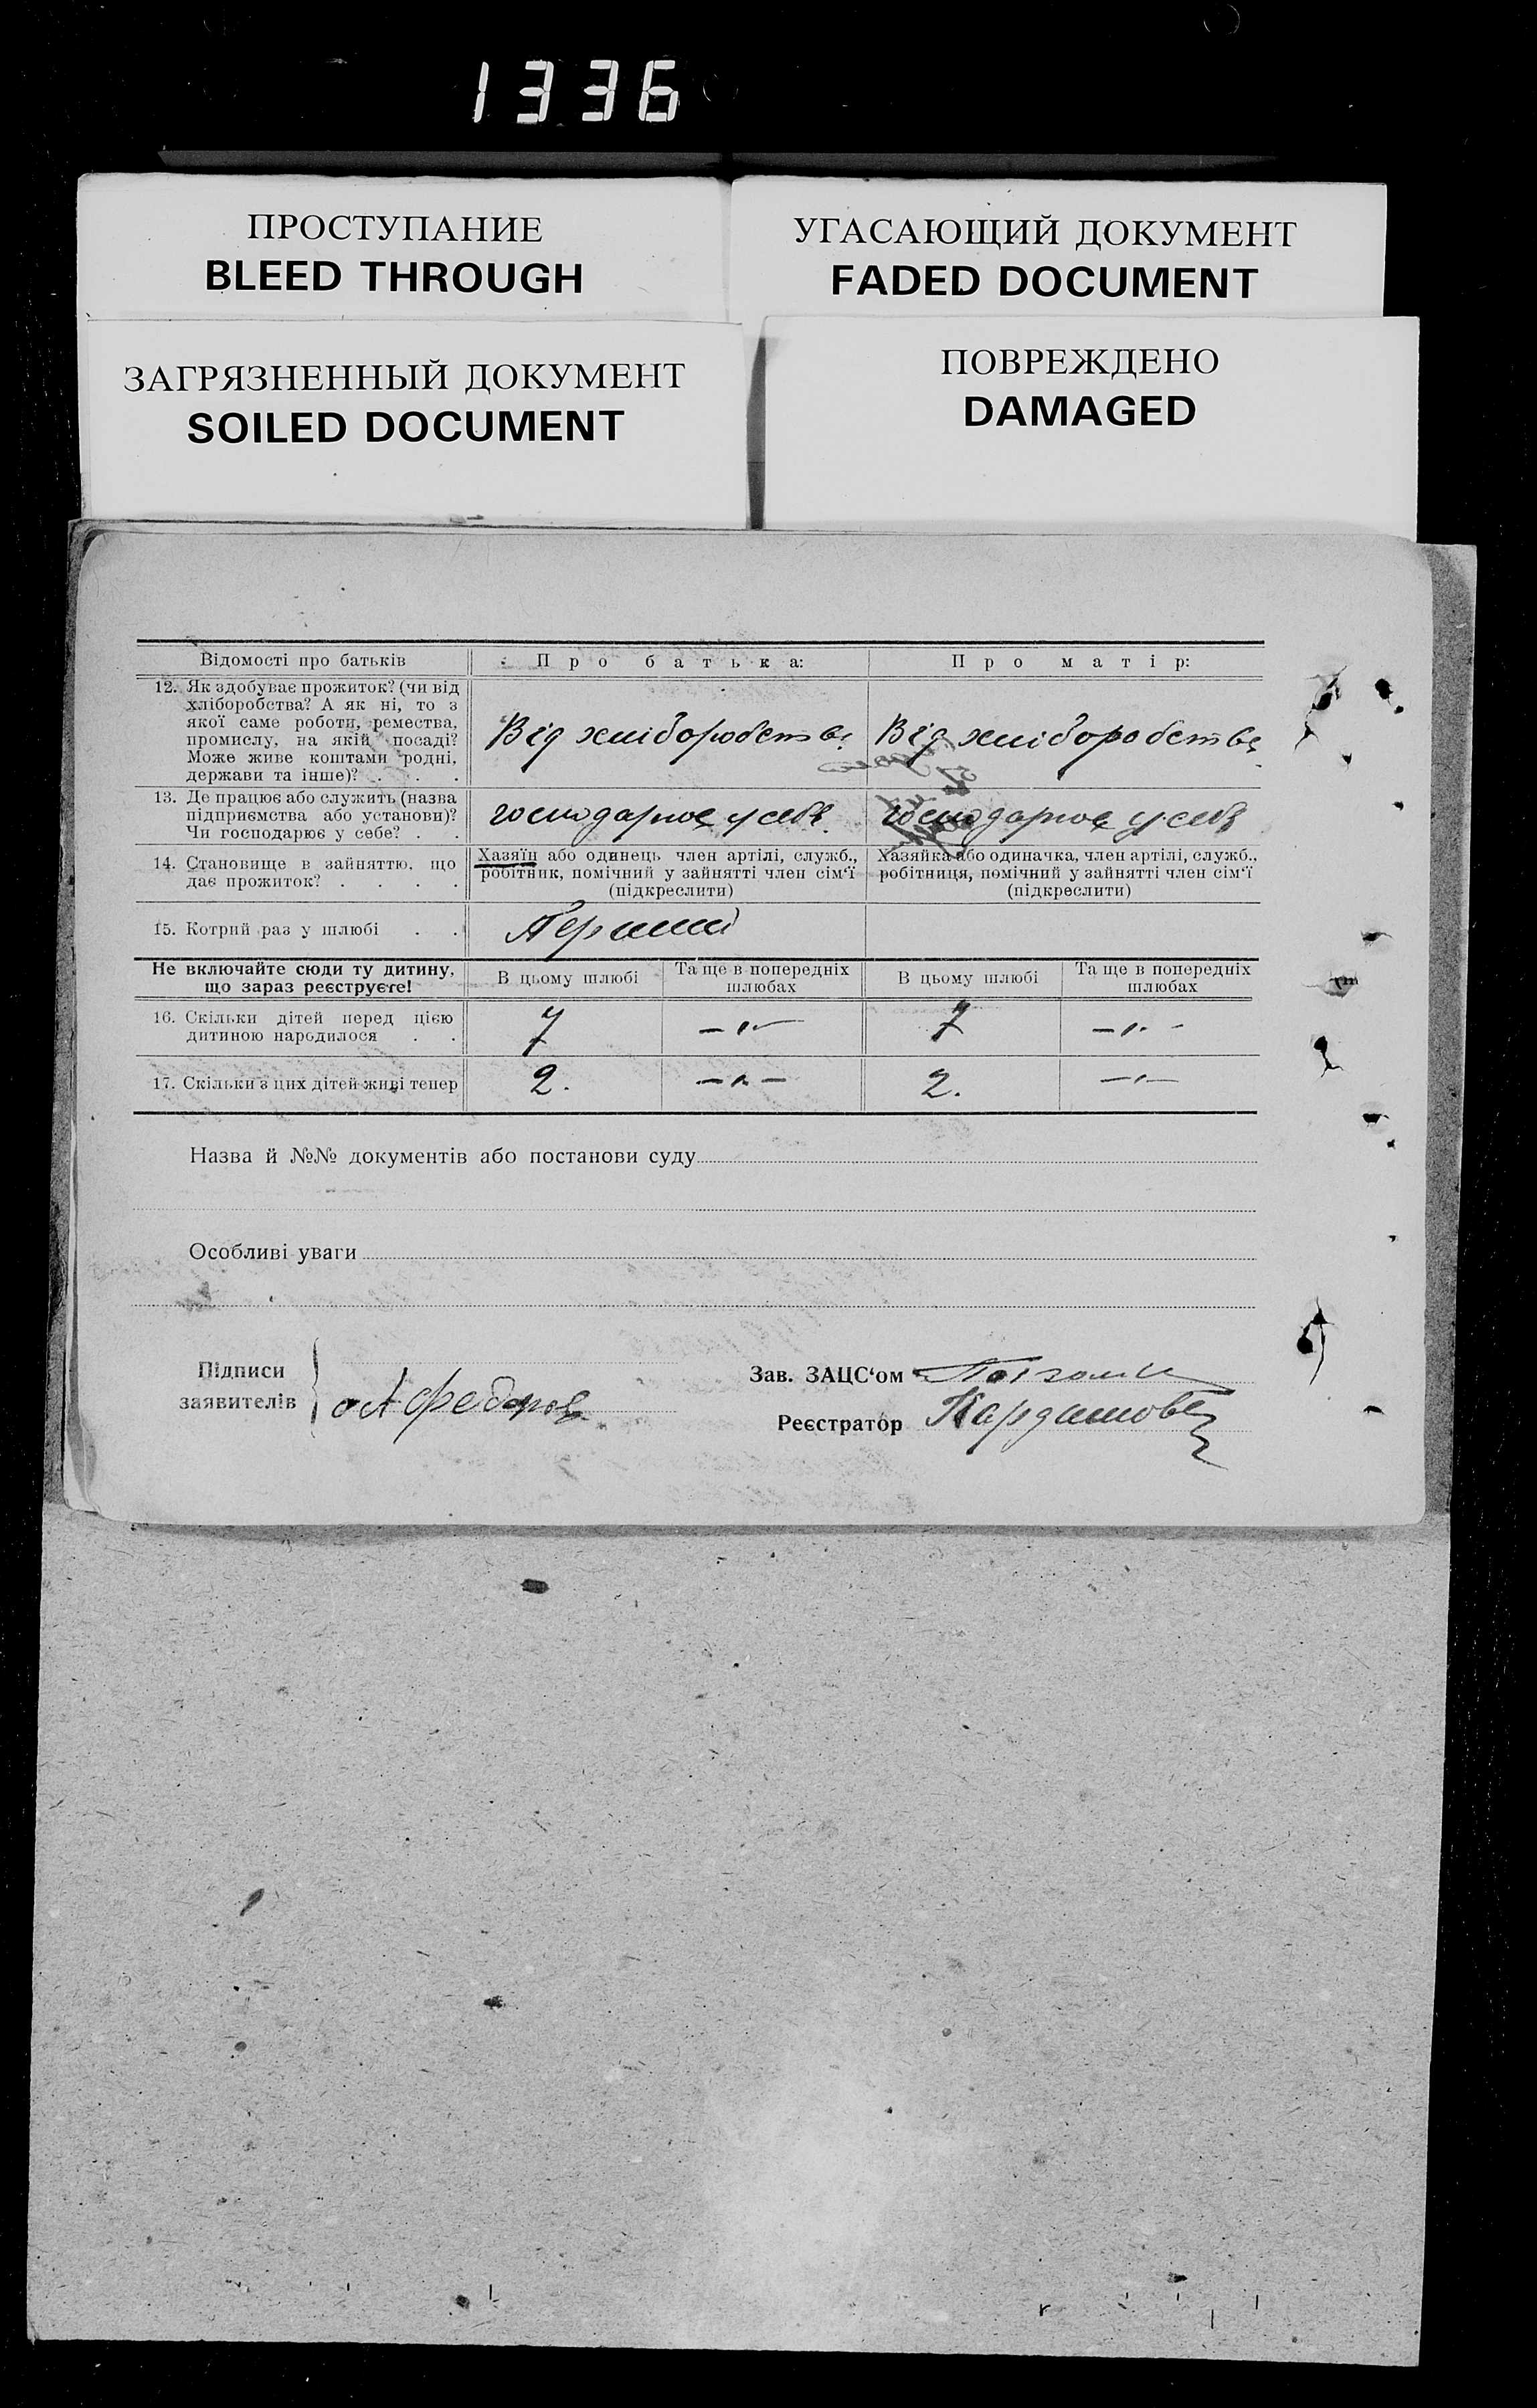 1336
ПРОСТУПАНИЕ
BLEED THROUGH
УГАСАЮЩИЙ ДОКУМЕНТ
FADED DOCUMENT
ЗАГРЯЗНЕННЫЙ ДОКУМЕНТ
SOILED DOCUMENT
ПОВРЕЖДЕНО
DAMAGED
Відомості про батьків Про батька: Про матір:
12. Як здобуває прожиток? (чи від
хліборобства? А як ні, то з
якої саме роботи, ремества,
промислу, на якій посаді?
Може живе коштами родні,
держави та інше)? . . .
Від хліборобства Від хліборобства
13. Де працює або служить (назва
підприємства або установи)?
Чи господарює у себе? . .
господарює у себе господарює у себе
14. Становище в зайняттю, що
дає прожиток? . . . .
Хазяїн або одинець член артілі, служб.,
робітник, помічний у зайнятті член сім'ї
(підкреслити)
Хазяйка або одиначка, член артілі, служб.,
робітниця, помічний у зайнятті член сім'ї
(підкреслити)
15. Котрий раз у шлюбі . . Перший
Не включайте сюди ту дитину,
що зараз реєструєте!
В цьому шлюбі
Та ще в попередніх
шлюбах
В цьому шлюбі
Та ще в попередніх
шлюбах
16. Скільки дітей перед цією
дитиною народилося . .
7 —"— 7 —"—
17. Скільки з цих дітей живі тепер 2. —"— 2. —"—
Назва й №№ документів або постанови суду
Особливі уваги
Підписи
заявителів
Федоров
Зав. ЗАЦС‘ом
Реєстратор